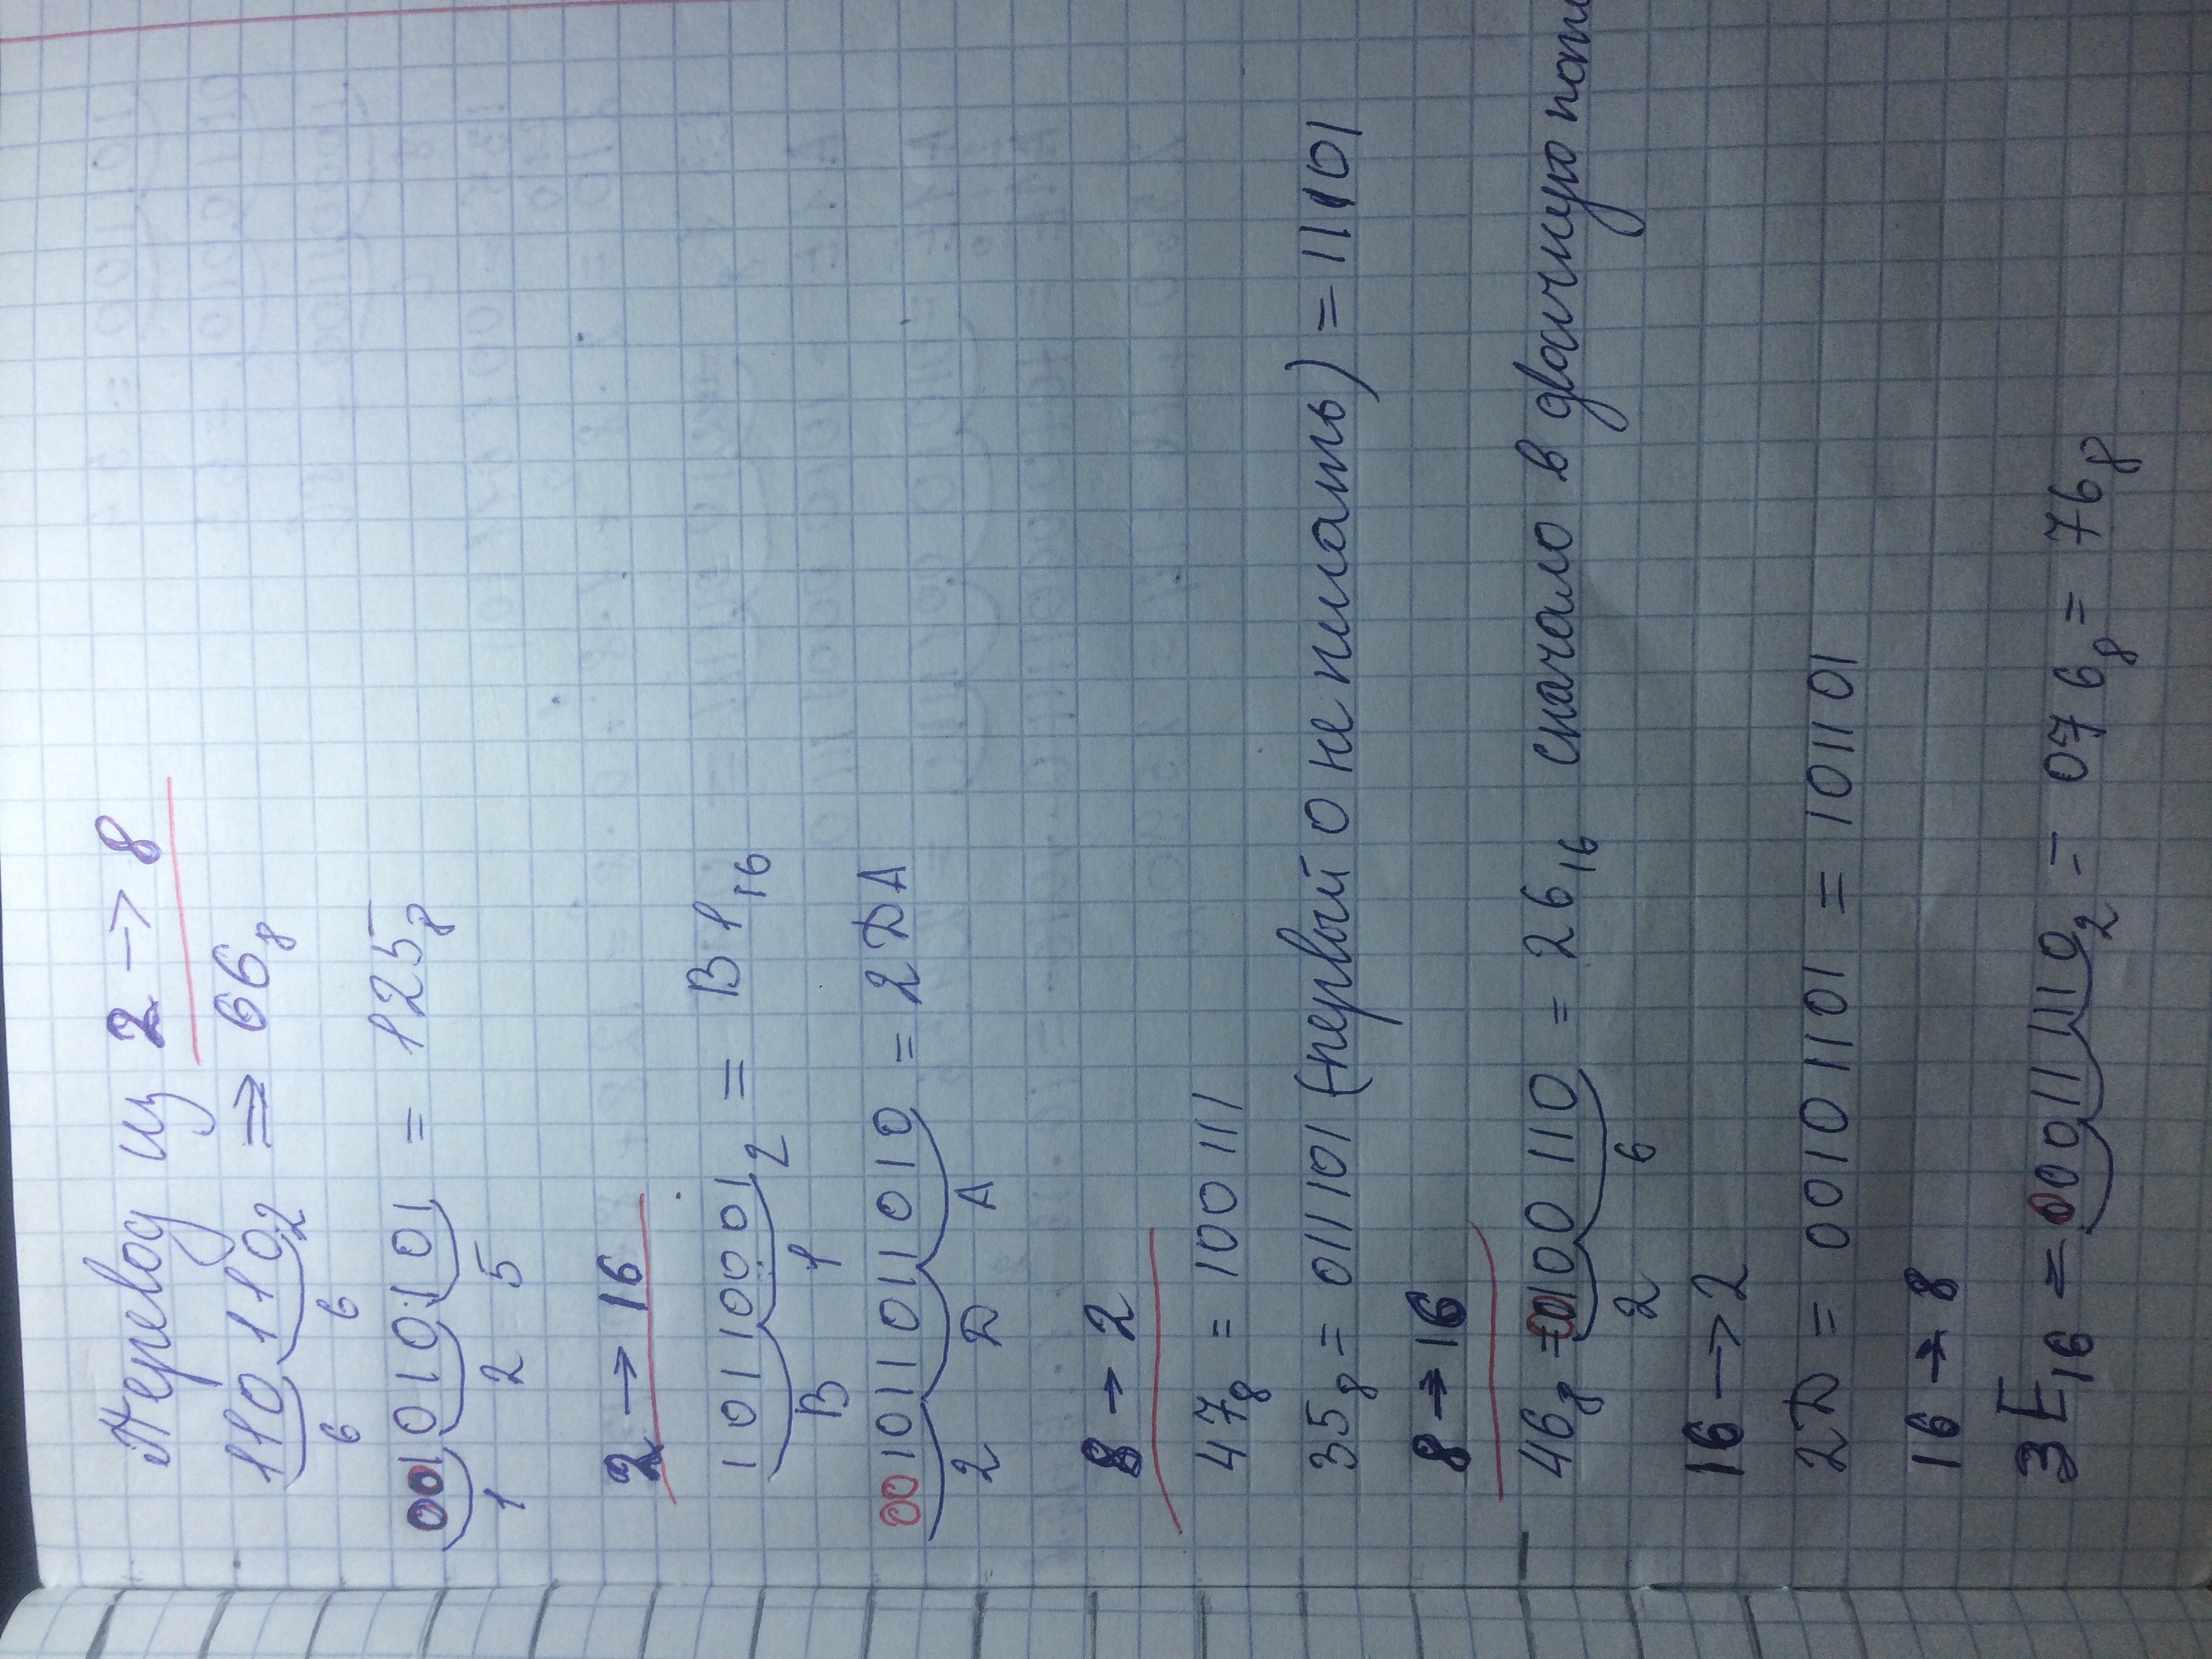 Перевод из 2 → 8
110 110₂ ⇒ 66₈
6 6
001 010 101 = 125₈
1 2 5
2 → 16
1011 0001₂ = B1₁₆
B 1
0010 1101 1010 = 2DA
2 D A
8 → 2
47₈ = 100 111
35₈ = 011 101 (первый 0 не писать) = 11101
8 → 16
46₈ = 00100 110 = 26₁₆ сначало в двоичную
2 6
16 → 2
2D = 0010 1101 = 101101
16 → 8
3E₁₆ = 000111110₂ = 076₈ = 76₈